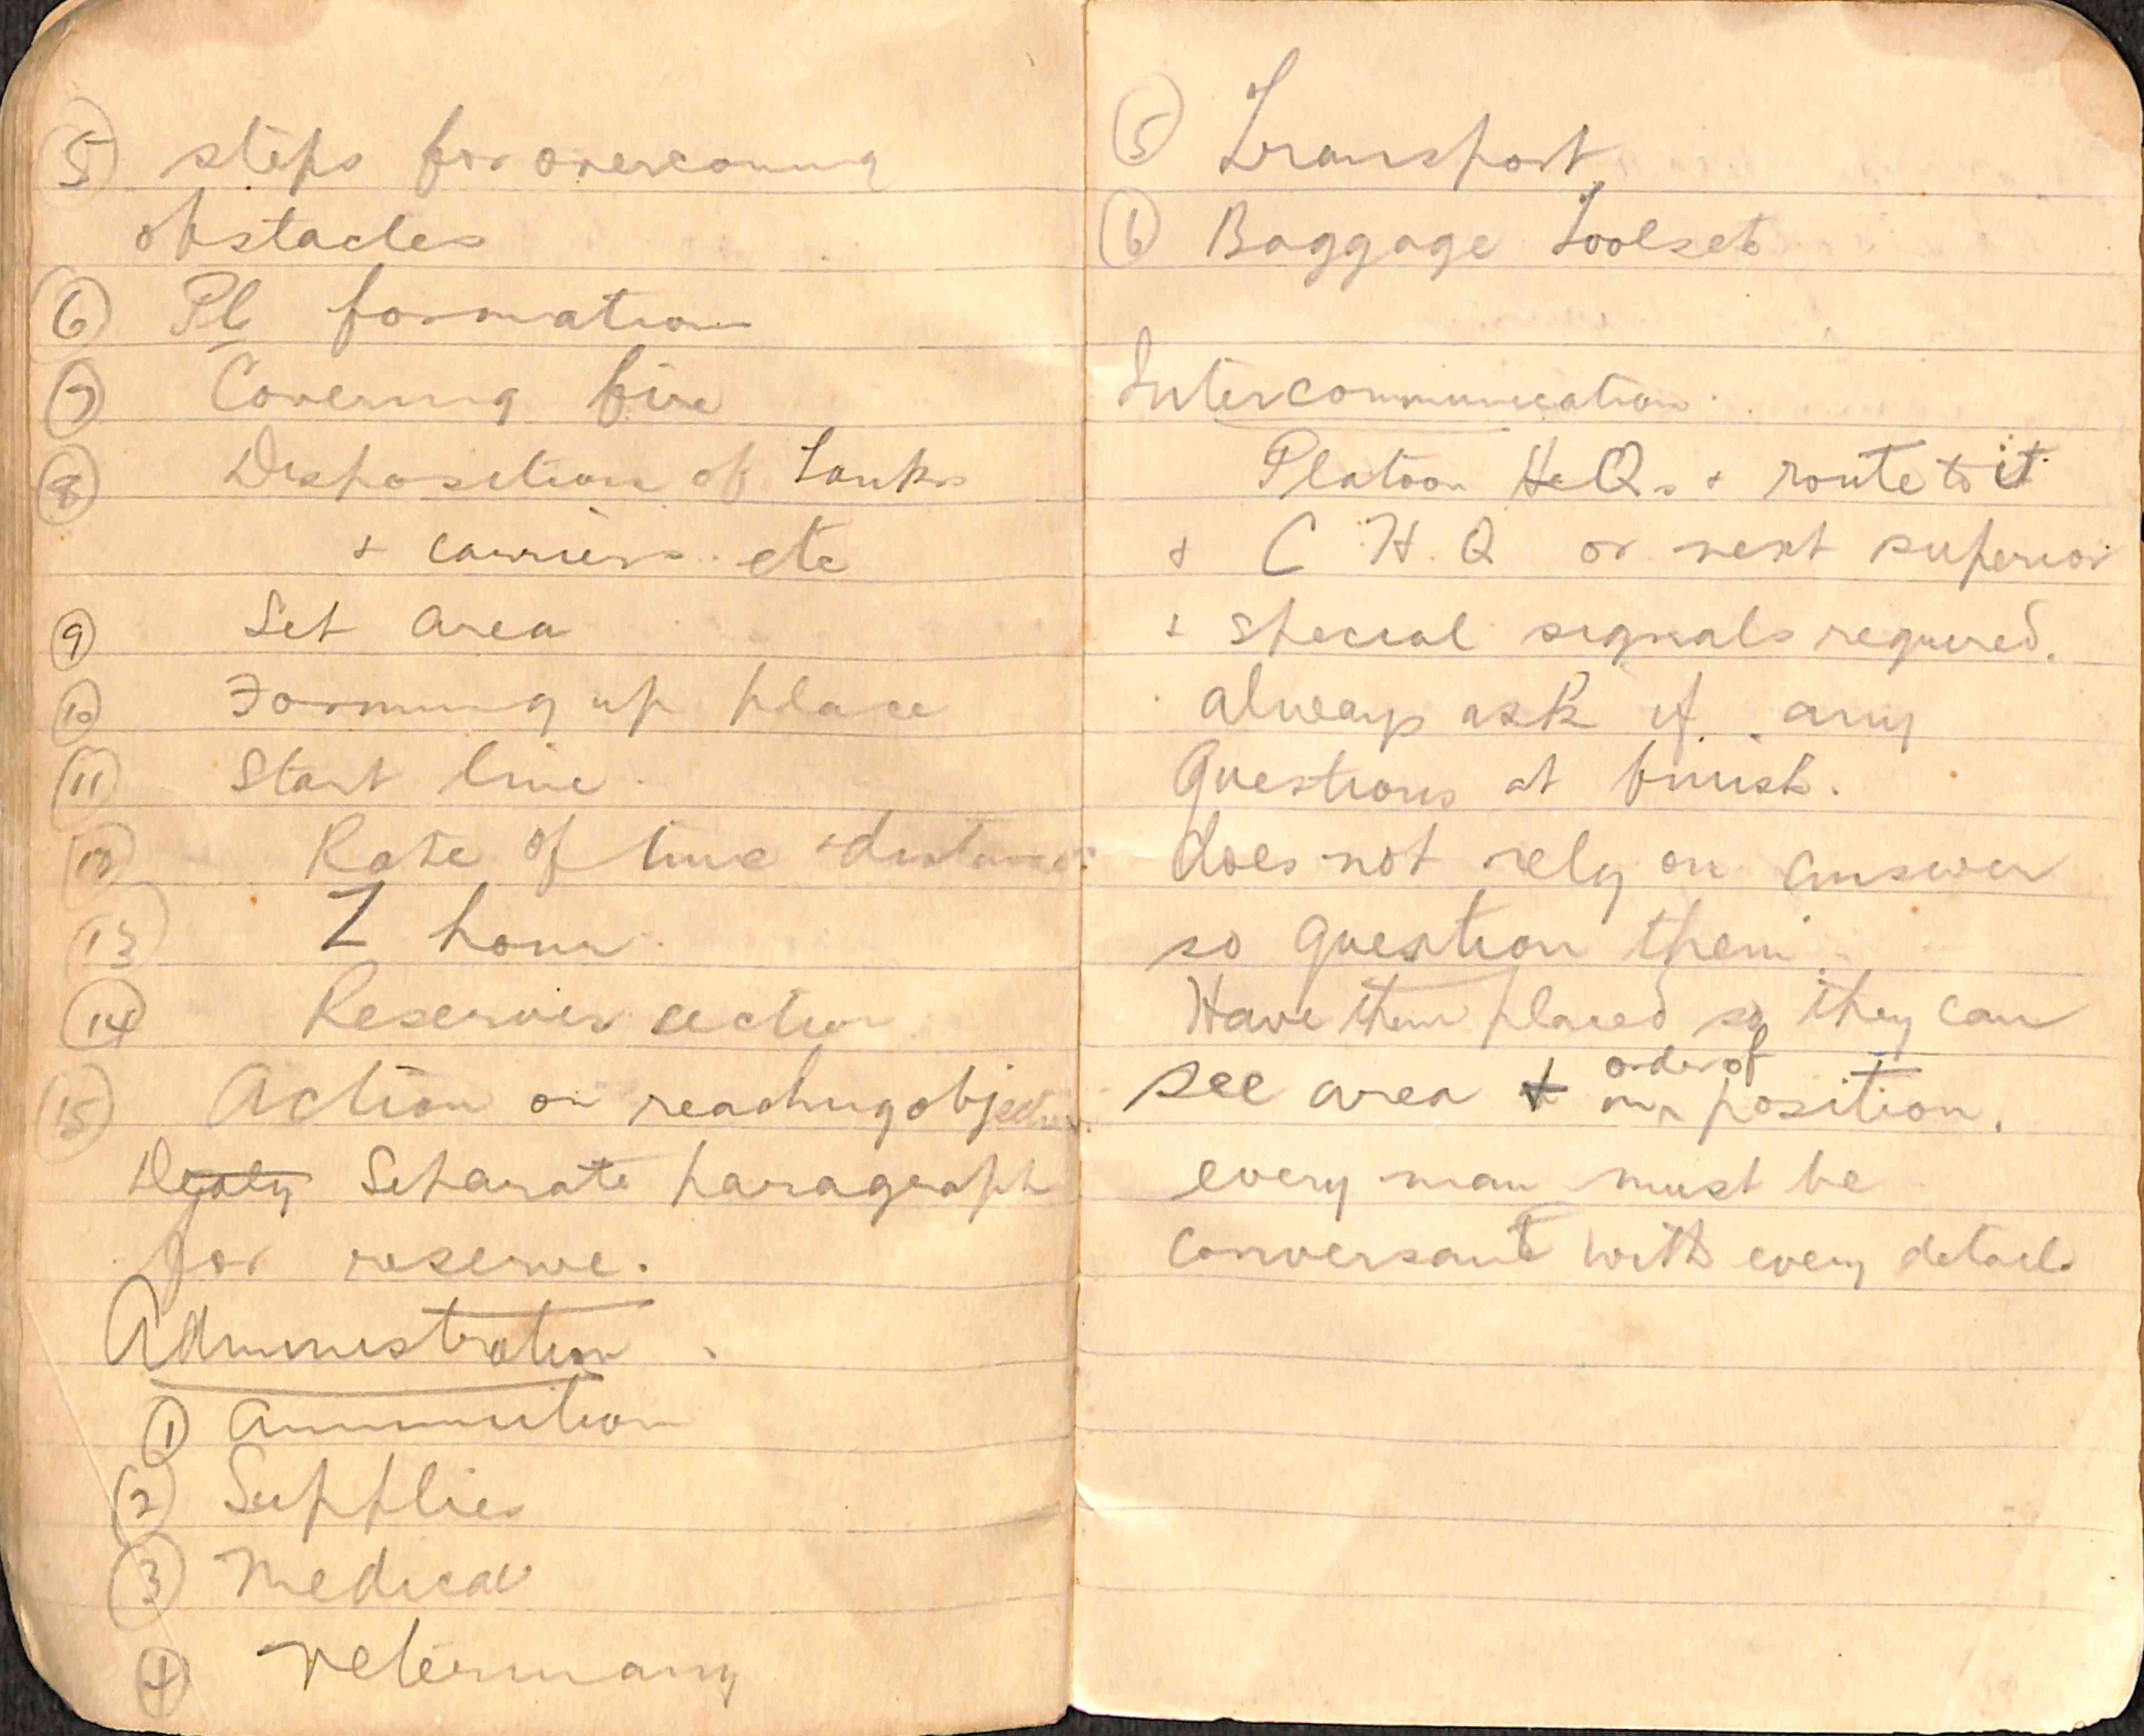 5 steps for overcoming
obstacles
6 Pl formation
7 Covering fire
8 Disposition of Tanks
+ carriers. etc
9 Set area
10 Forming up place
11 Start line.
12 Rate of time + distance
13 Z hour.
14 Reserves section
15 Action on reaching objective
Separate paragraph
for reserve.
Administration.
1 Ammunition
2 Supplies
3 Medical
4 Veterinary
5 Transport
6 Baggage Toolsets
Intercommunication.
Platoon H.Q. + route to it
+ C H. Q or next superior
+ special signals required.
always ask if any
Questions at finish.
does not rely on answer
so question them.
Have them placed so they can
see area + order of
position.
every man must be
conversant with every detail.